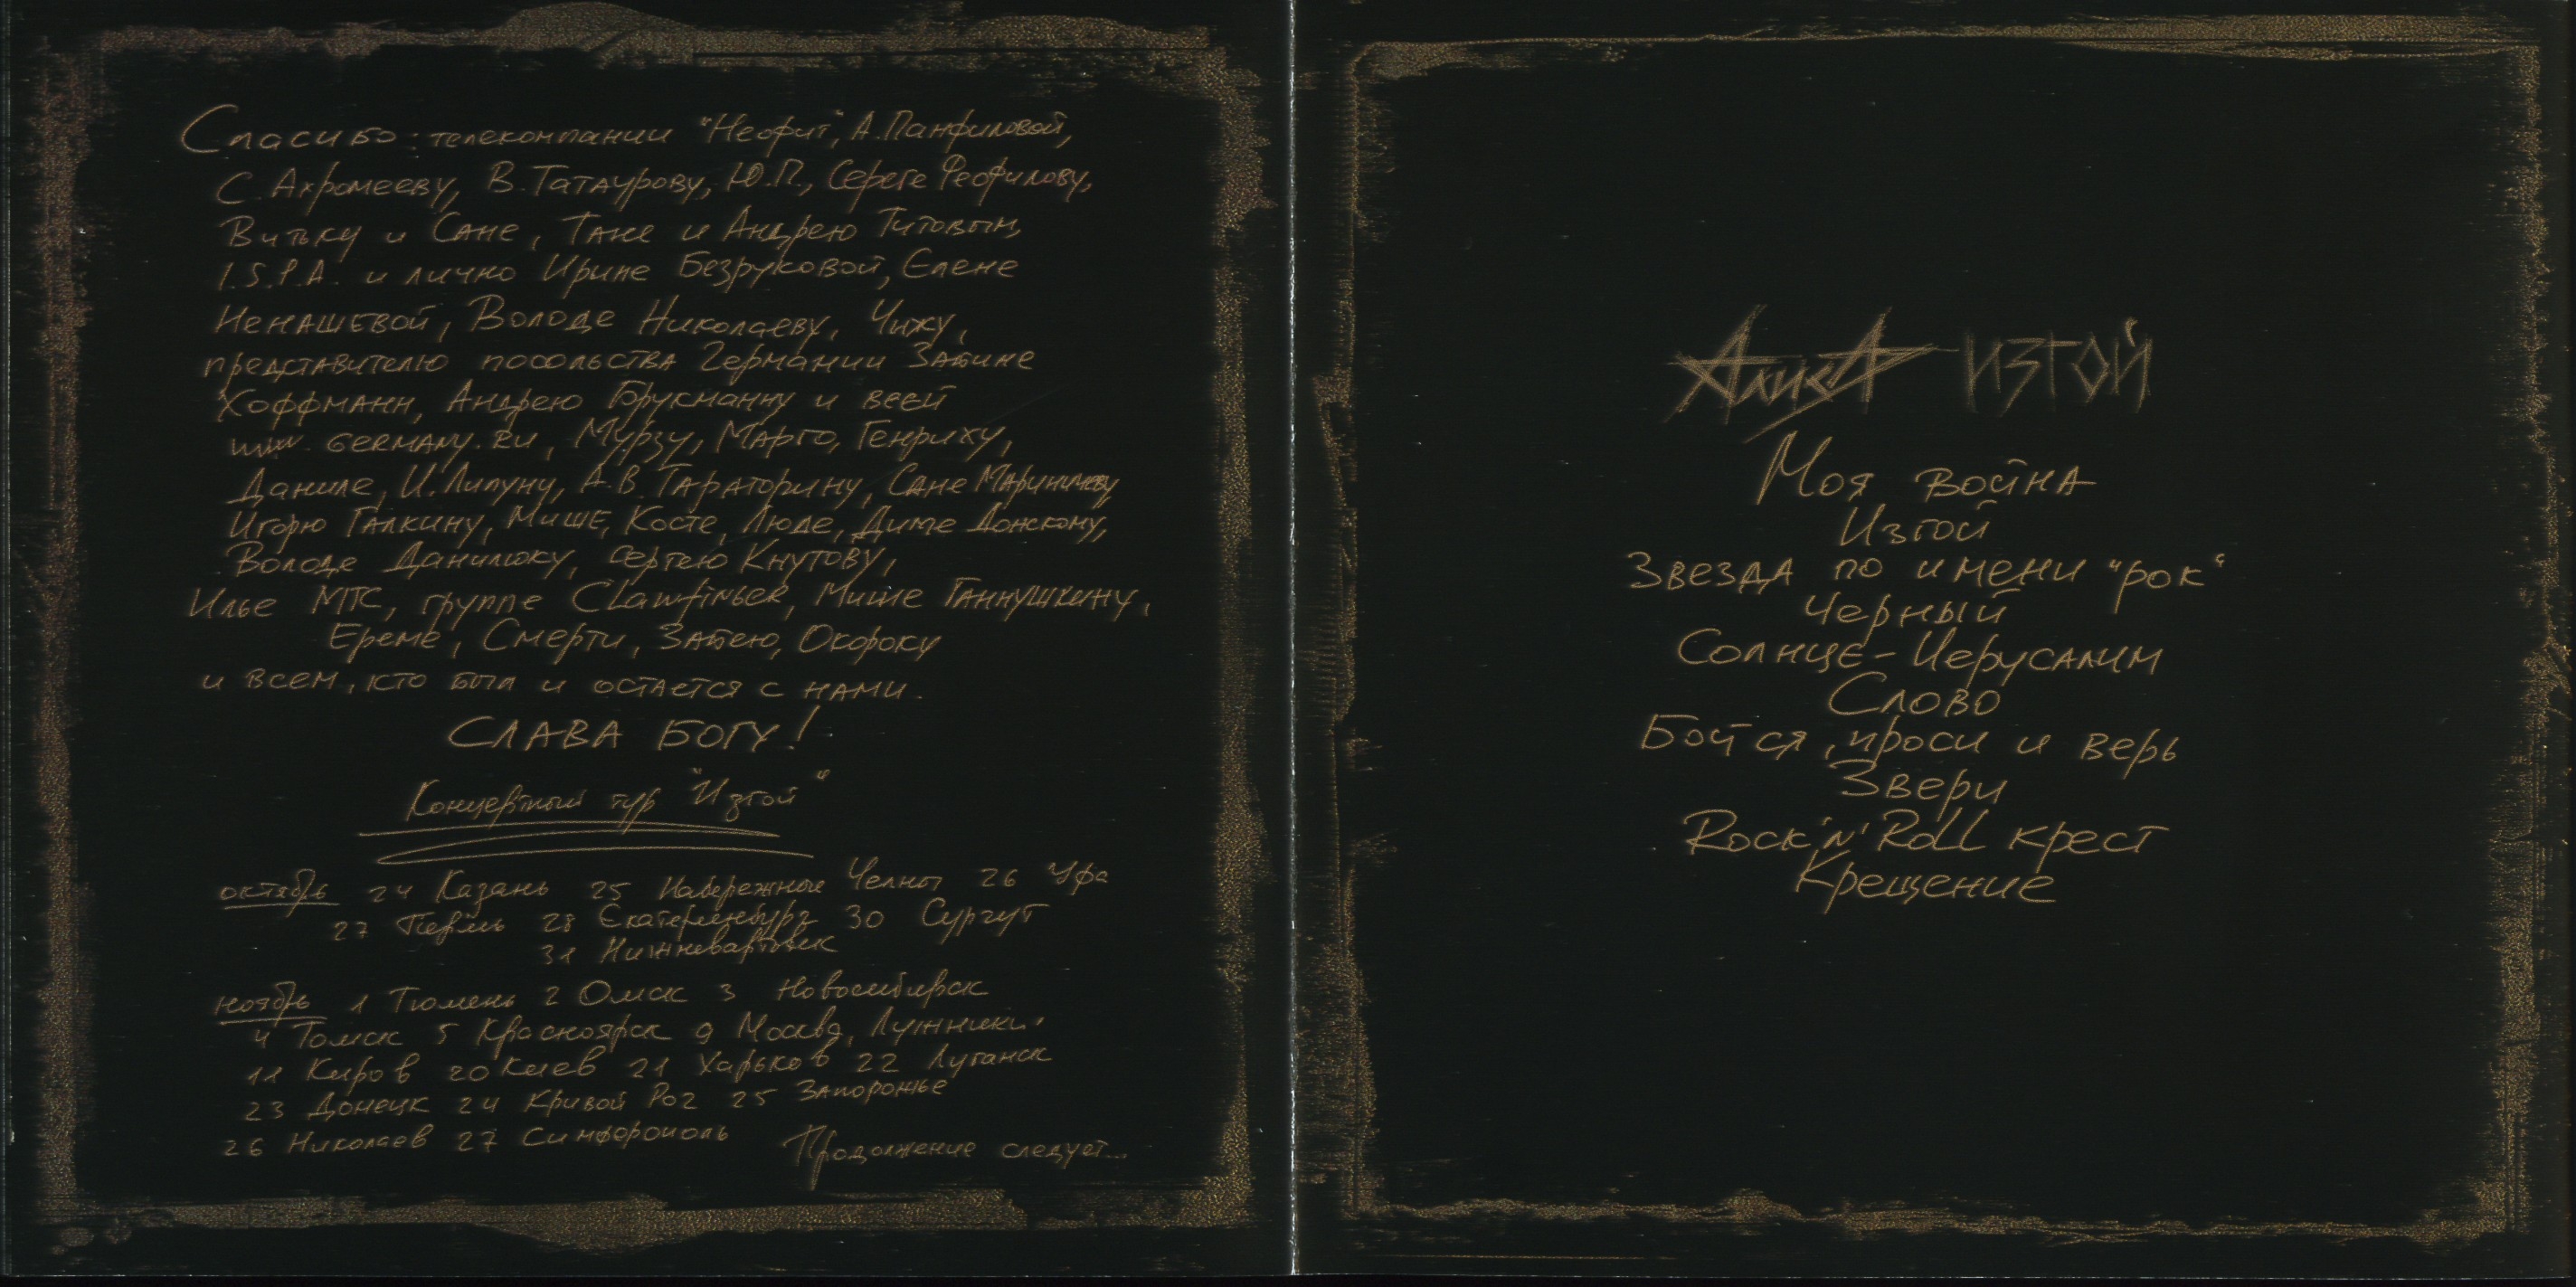 Спасибо: телекомпании "Неофит", А.Панфиловой,
С. Ахромееву, В. Татаурову, Ю.П., Сереге Феофилову,
Витьку и Сане, Тане и Андрею Титовым,
I.S.P.A. и лично Ирине Безруковой, Елене
Ненашевой, Володе Николаеву, Чижу,
представителю посольства Германии Забине
Хоффманн, Андрею Брукманну и всей
www.GERMANY.RU, Мурзу, Марго, Генриху,
Даниле, И.Липуну, А.В. Тараторину, Сане Мариничеву
Игорю Галкину, Мише, Косте, Люде, Диме Донскому,
Володе Данилюку, Сергею Кнутову,
Илье МТС, группе Clawfinger, Мише Ганнушкину,
Ереме, Смерти, Забею, Окороку
и всем, кто был и остается с нами.
СЛАВА БОГУ!
Концертный тур "Изгой"
октябрь 24 Казань 25 Набережные Челны 26 Уфа
27 Пермь 28 Екатеринбург 30 Сургут
31 Нижневартовск
ноябрь 1 Тюмень 2 Омск 3 Новосибирск
4 Томск 5 Красноярск 9 Москва, Лужники.
11 Киров 20 Киев 21 Харьков 22 Луганск
23 Донецк 24 Кривой Рог 25 Запорожье
26 Николаев 27 Симферополь Продолжение следует...
АлисА ИЗГОЙ
Моя война
Изгой
Звезда по имени "рок"
Черный
Солнце-Иерусалим
Слово
Бойся, проси и верь
Звери
Rock'n'Roll крест
Крещение